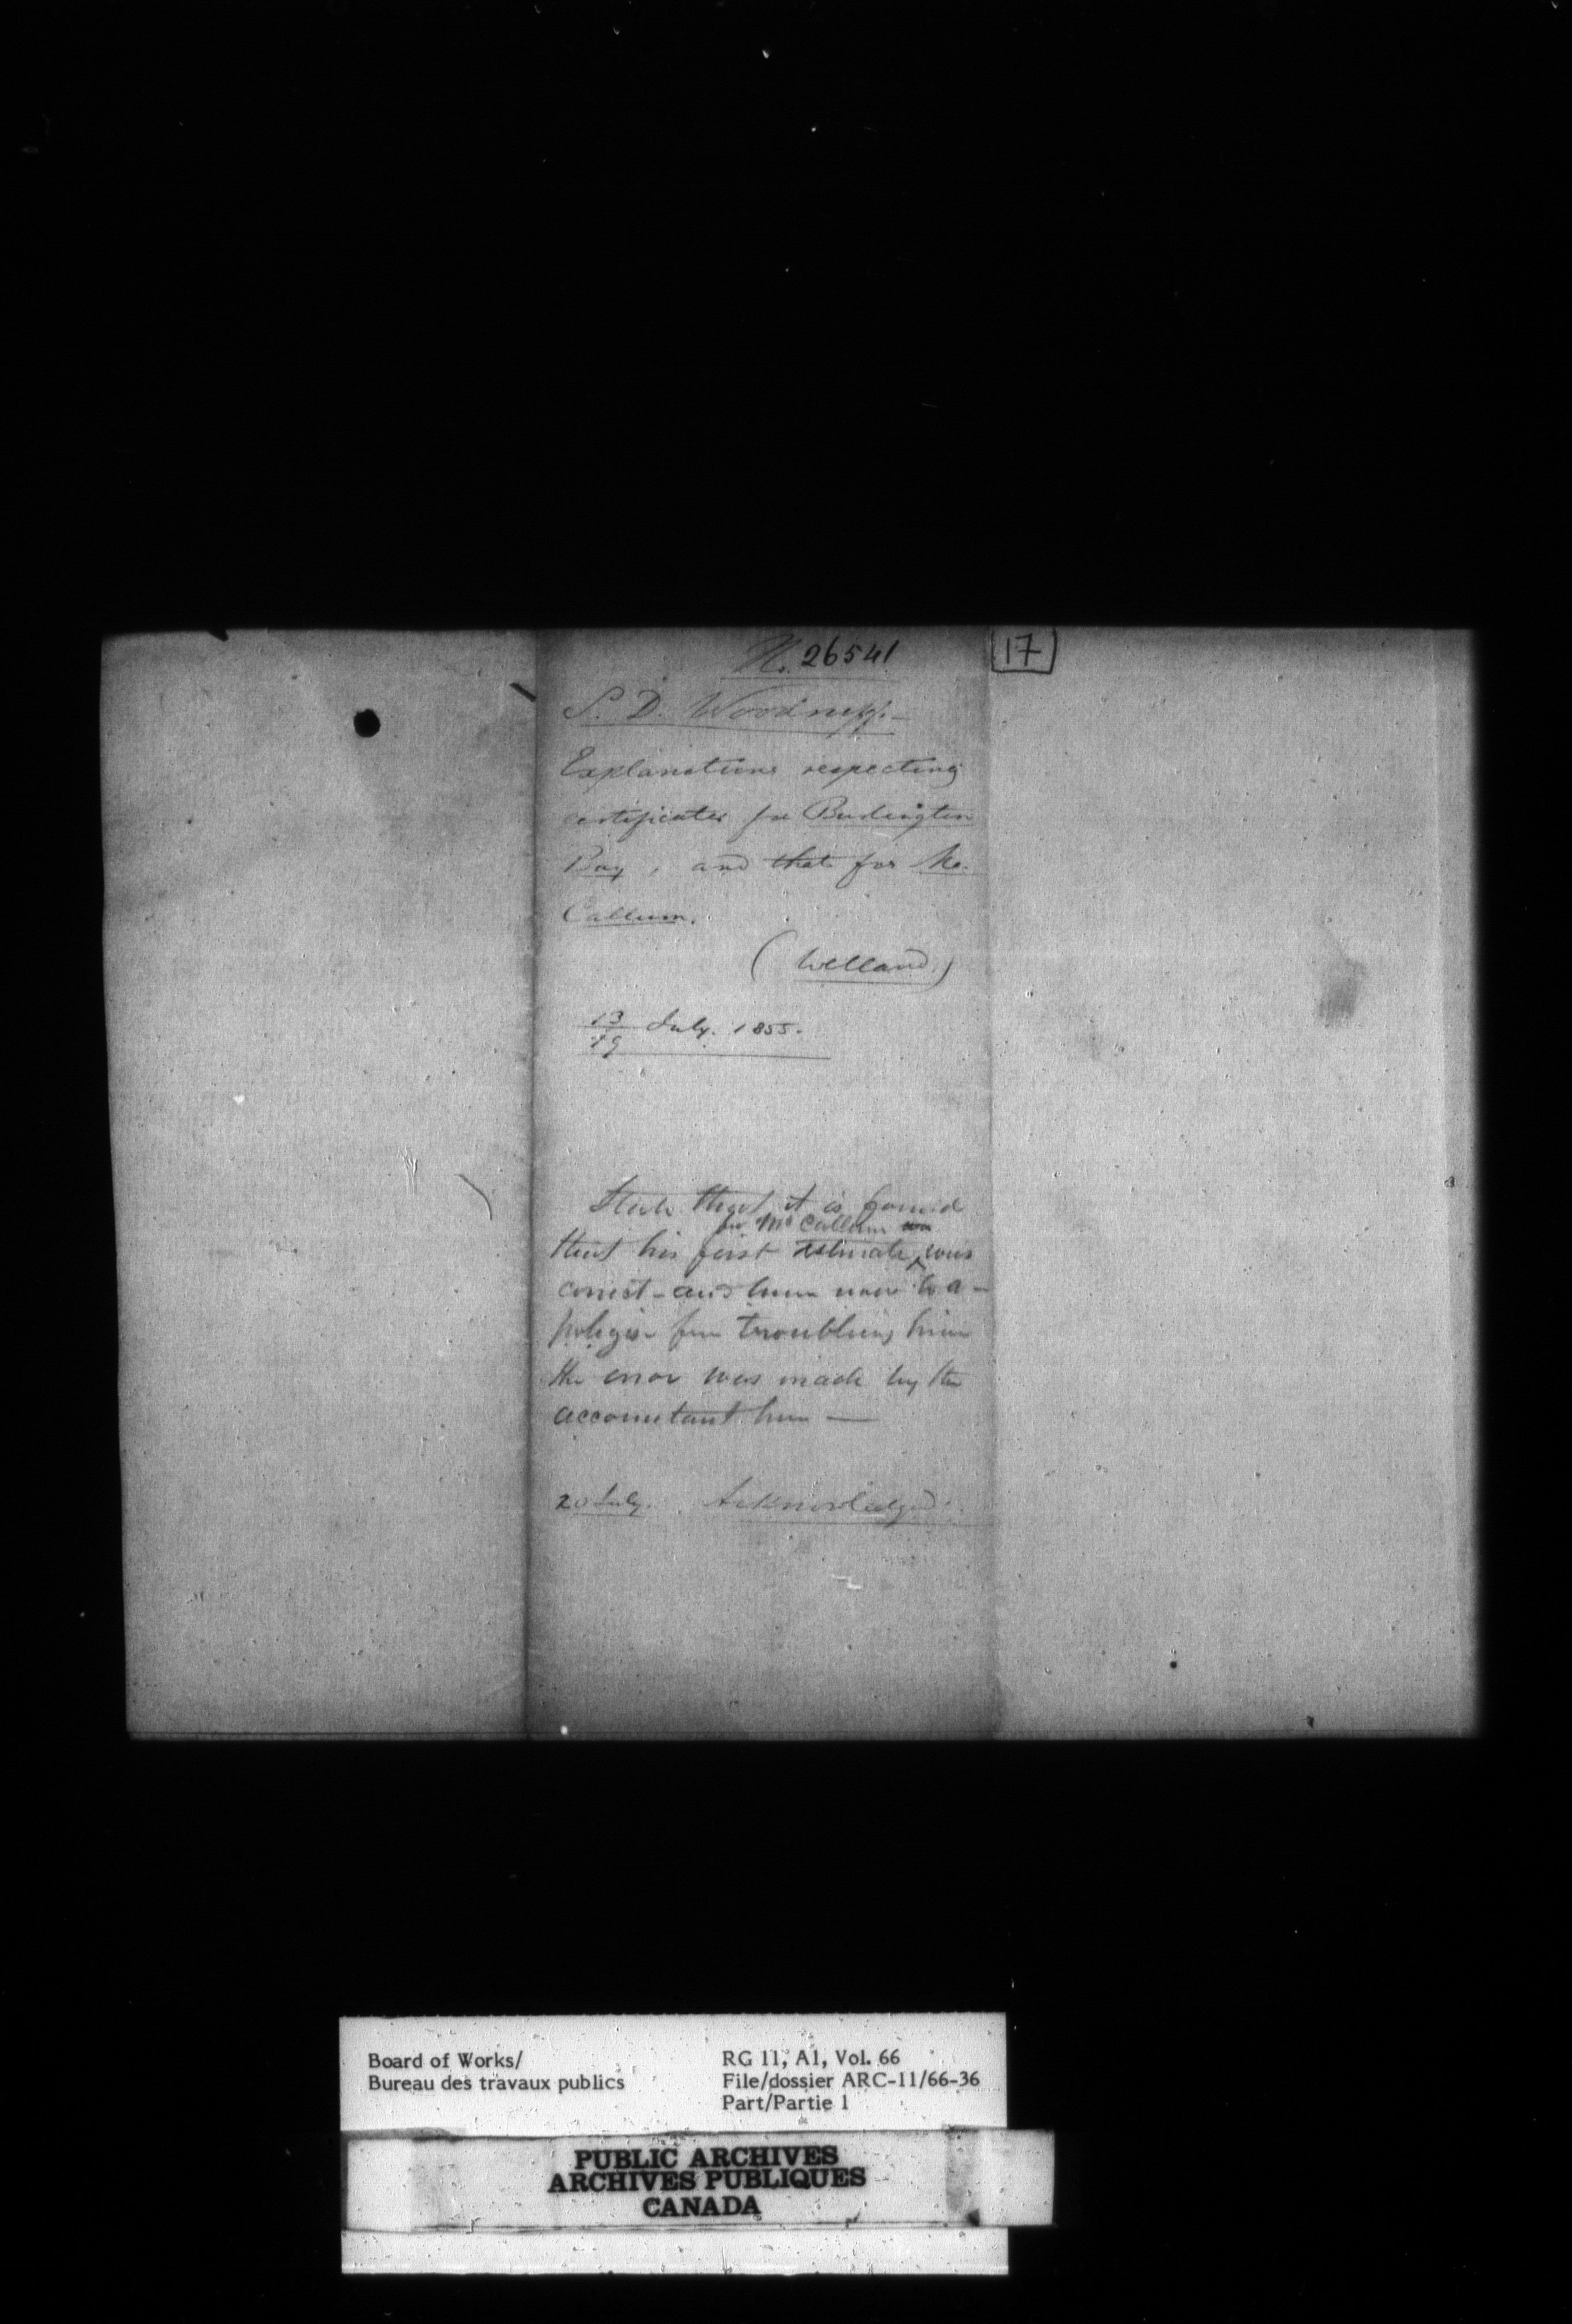 N. 26541
17
S. D. Woodruff.
Explanations respecting
certificates for Burlington
Bay, and that for Mc.
Callum.
(Welland.)
13
19 July. 1855.
State that it is found
for McCallum was
that his first estimate was
correct - and
pologise for troubling him
the error was made by the
accountant here —
20 July. Acknowledged.
Board of Works/
Bureau des travaux publics
RG 11, A1, Vol. 66
File/dossier ARC-11/66-36
Part/Partie 1
PUBLIC ARCHIVES
ARCHIVES PUBLIQUES
CANADA